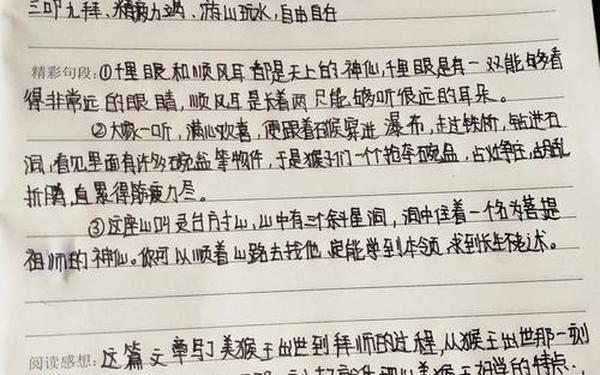 三叩九拜、精疲力竭、游山玩水,自由自在
精彩句段:①千里眼和顺风耳都是天上的神仙,千里眼是有一双能够看
得非常远的眼睛,顺风耳是长着两只能够听很远的耳朵。
②大家一听,满心欢喜,便跟着石猴穿进瀑布,走过铁桥,钻进石
洞,看见里面有许多碗盆等物件,于是猴子们一个抢夺碗盆,占灶争床,胡乱
折腾,直累得筋疲力尽。
③这座山叫灵台方寸山,山中有三个斜星洞,洞中住着一个名为菩提
祖师的神仙。你可以顺着山路去找他,定能学到本领,求到长生不老术。
阅读感想:这篇文章写了美猴王出世到拜师的过程,从猴王出世那一刻
美猴王好学的特点.